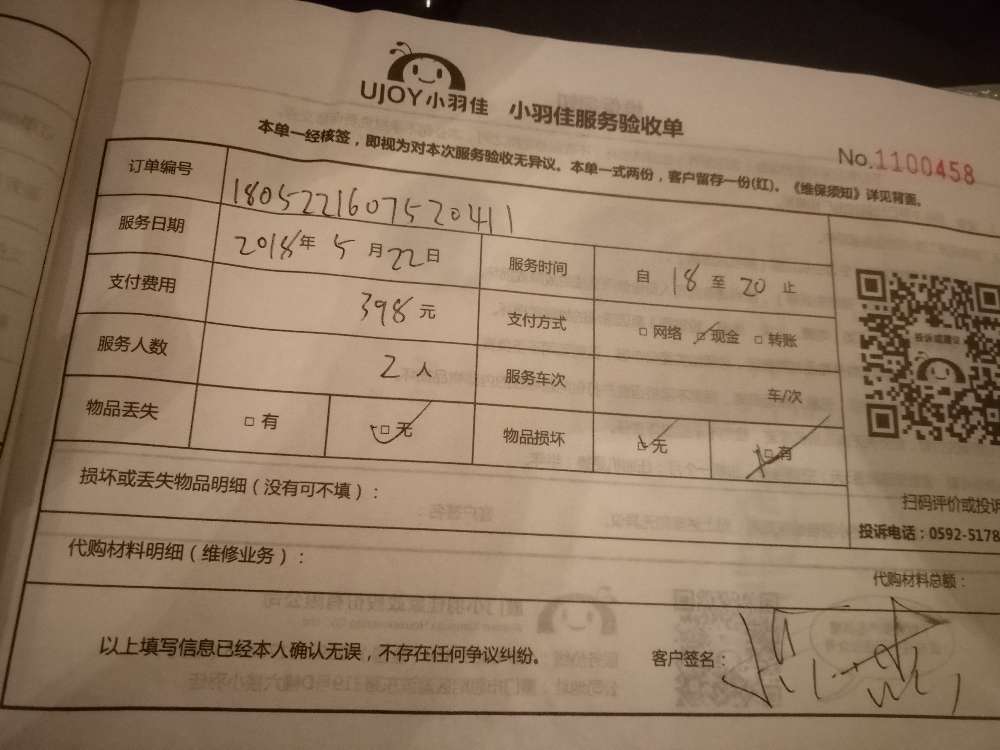 UJOY小羽佳 小羽佳服务验收单
本单一经核签，即视为对本次服务验收无异议。本单一式两份，客户留存一份(红)。《维保须知》详见背面。
No.1100458
订单编号 1805221607520411
服务日期 2018年 5 月 22 日 服务时间 自 18 至 20 止
支付费用 398 元 支付方式 □ 网络 □ 现金 □ 转账
服务人数 2 人 服务车次 车/次
物品丢失 □ 有 □ 无 物品损坏 □ 无 □ 有
投诉或建议
损坏或丢失物品明细（没有可不填）：
扫码评价或投诉
投诉电话：0592-5178
代购材料明细（维修业务）：
代购材料总额：
以上填写信息已经本人确认无误，不存在任何争议纠纷。 客户签名：